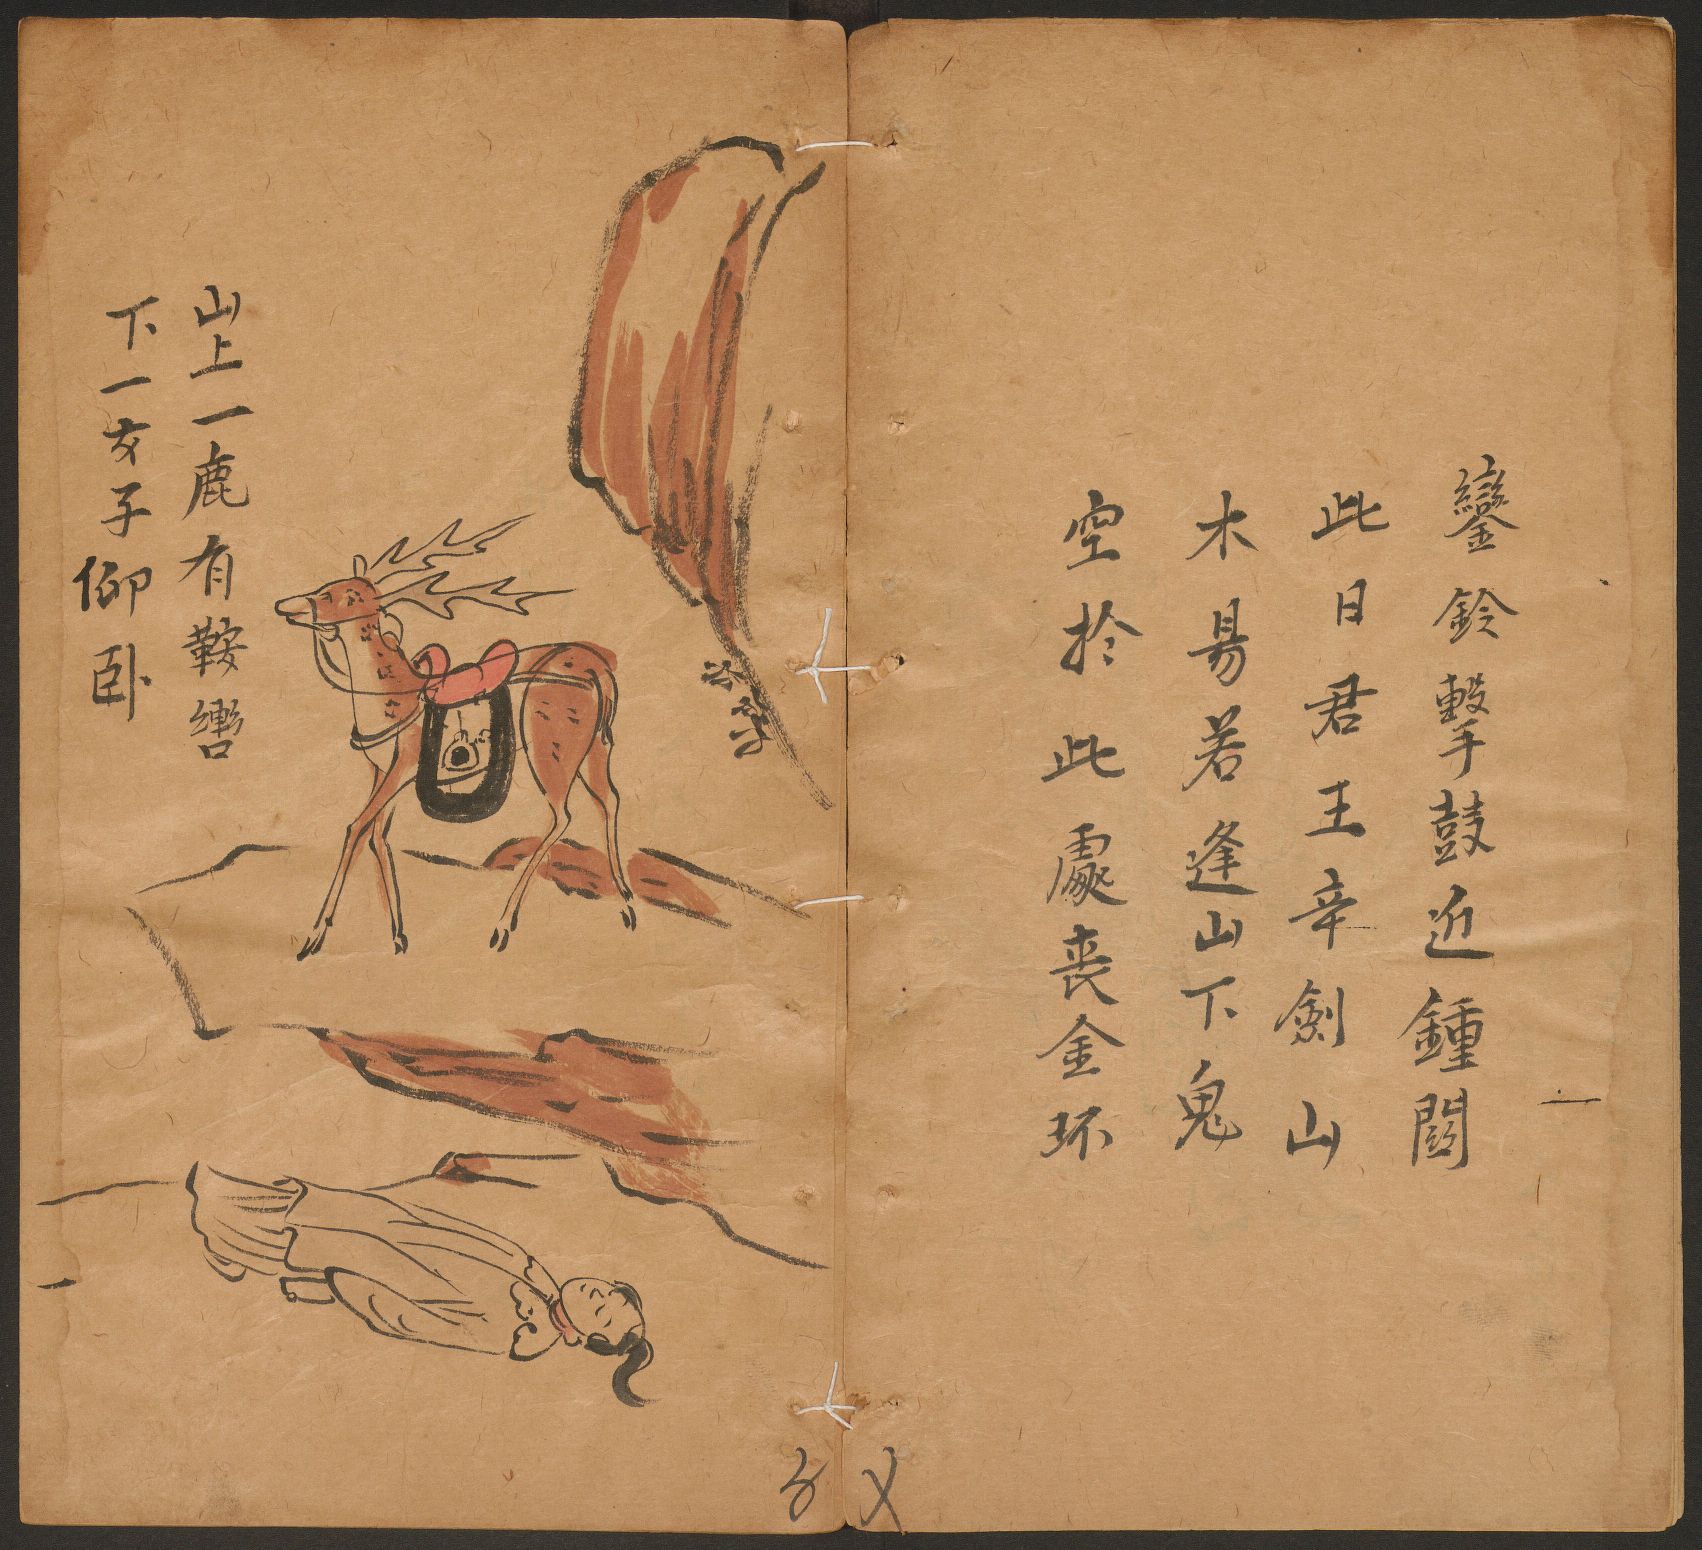 鑾鈴擊鼓近鍾闘
此日君王幸劍山
木易若逢山下鬼
空扵此處喪金环
山上一鹿有鞍轡
下一女子仰卧